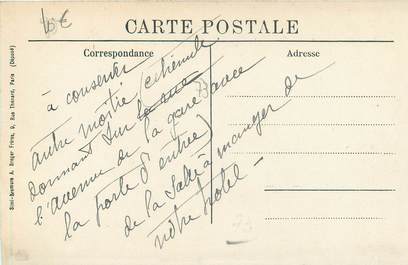 6€
CARTE POSTALE
Correspondance
Adresse
Simi-Bromure A. Breger Frères, 9, Rue Thénard, Paris (Déposé)
à conserver
autre moitié (extérieure
donnant sur la rue
l'avenue de la gare avec
la porte d'entrée)
de la salle à manger de
notre hotel -
73